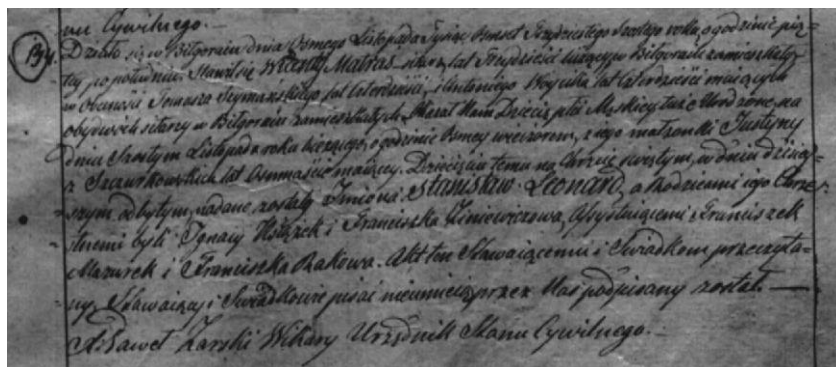 nu Cywilnego. —
194. Działo się w Biłgoraiu dnia Osmego Listopada Tysiąc Osmset Trzydziestego Szostego roku, o godzinie pią-
tey po południu. Stawił się Wicenty Matras sitarz lat Trzydzieści liczący w Biłgoraiu zamieszkały
w obecności Tomasza Szymańskiego lat czterdzieści, i Antoniego Woycika lat czterdzieści maiących
obydwóch sitarzy w Biłgoraiu zamieszkałych, okazał Nam Dziecię płci Męzkiey tuże Urodzone, na
dniu Szostym Listopada roku bieżącego, o godzinie Osmey wieczorem, z iego małżonki Justyny
z Szczurkowskich lat Osmnaście maiącey. Dziecięciu temu na Chrzcie świętym, w dniu dzisiey-
szym odbytym, nadane zostały Imiona: Stanisław Leonard, a Rodzicami iego Chrze-
stnemi byli Ignacy Książek i Franciszka Ziniewiczowa, Assystuiącemi Franciszek
Mazurek i Franciszka Bakowa. Akt ten Stawaiącemu i Swiadkom przeczyta-
ny, Stawaiący i Swiadkowie pisać nieumieią przez Nas podpisany został —
X. Paweł Zarski Wikary Urzędnik Stanu Cywilnego. —